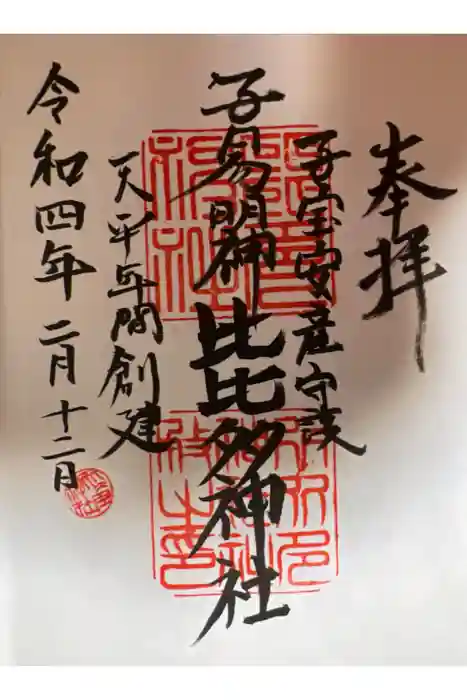 奉拝
子宝安産守護
子易明神 比比多神社
天平年間創建
令和四年 二月 十二日